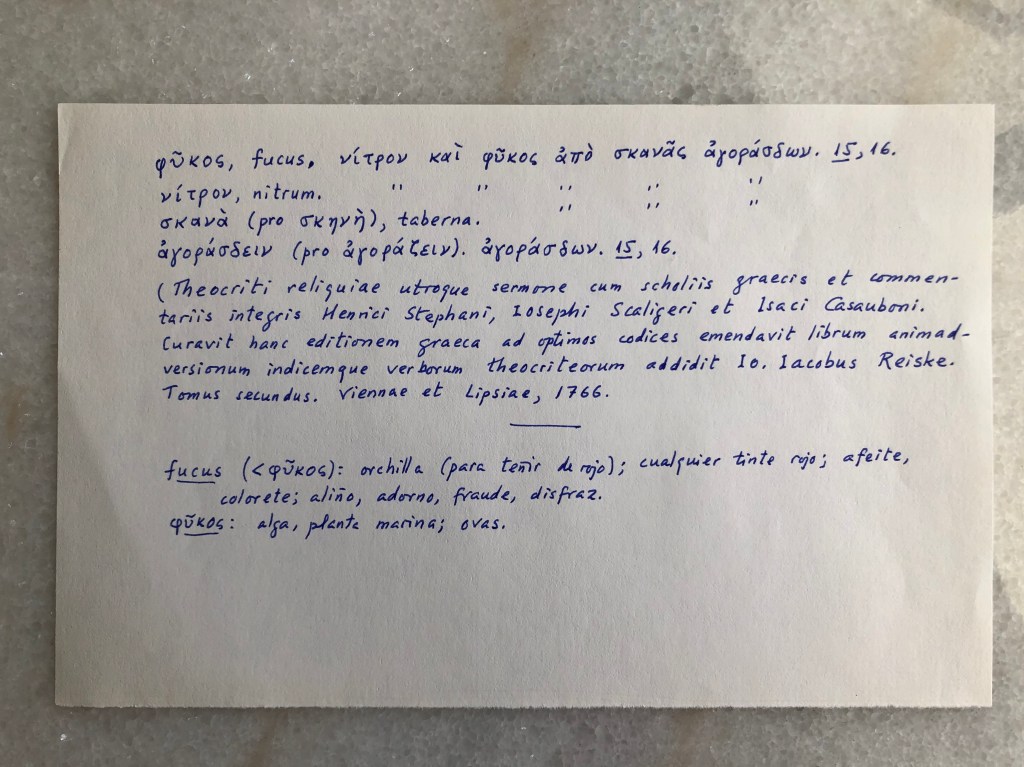 φῦκος, fucus, νίτρον καὶ φῦκος ἀπὸ σκανᾶς ἀγοράσδων. 15, 16.
νίτρον, nitrum. " " " " "
σκανὰ (pro σκηνὴ), taberna. " " "
ἀγοράσδειν (pro ἀγοράζειν). ἀγοράσδων. 15, 16.
(Theocriti reliquiae utroque sermone cum scholiis graecis et commen-
tariis integris Henrici Stephani, Iosephi Scaligeri et Isaci Casauboni.
Curavit hanc editionem graeca ad optimos codices emendavit librum animad-
versionum indicemque verborum theocriteorum addidit Io. Iacobus Reiske.
Tomus secundus. Viennae et Lipsiae, 1766.
fucus (< φῦκος): orchilla (para teñir de rojo); cualquier tinte rojo; afeite,
colorete; aliño, adorno, fraude, disfraz.
φῦκος: alga, planta marina; ovas.